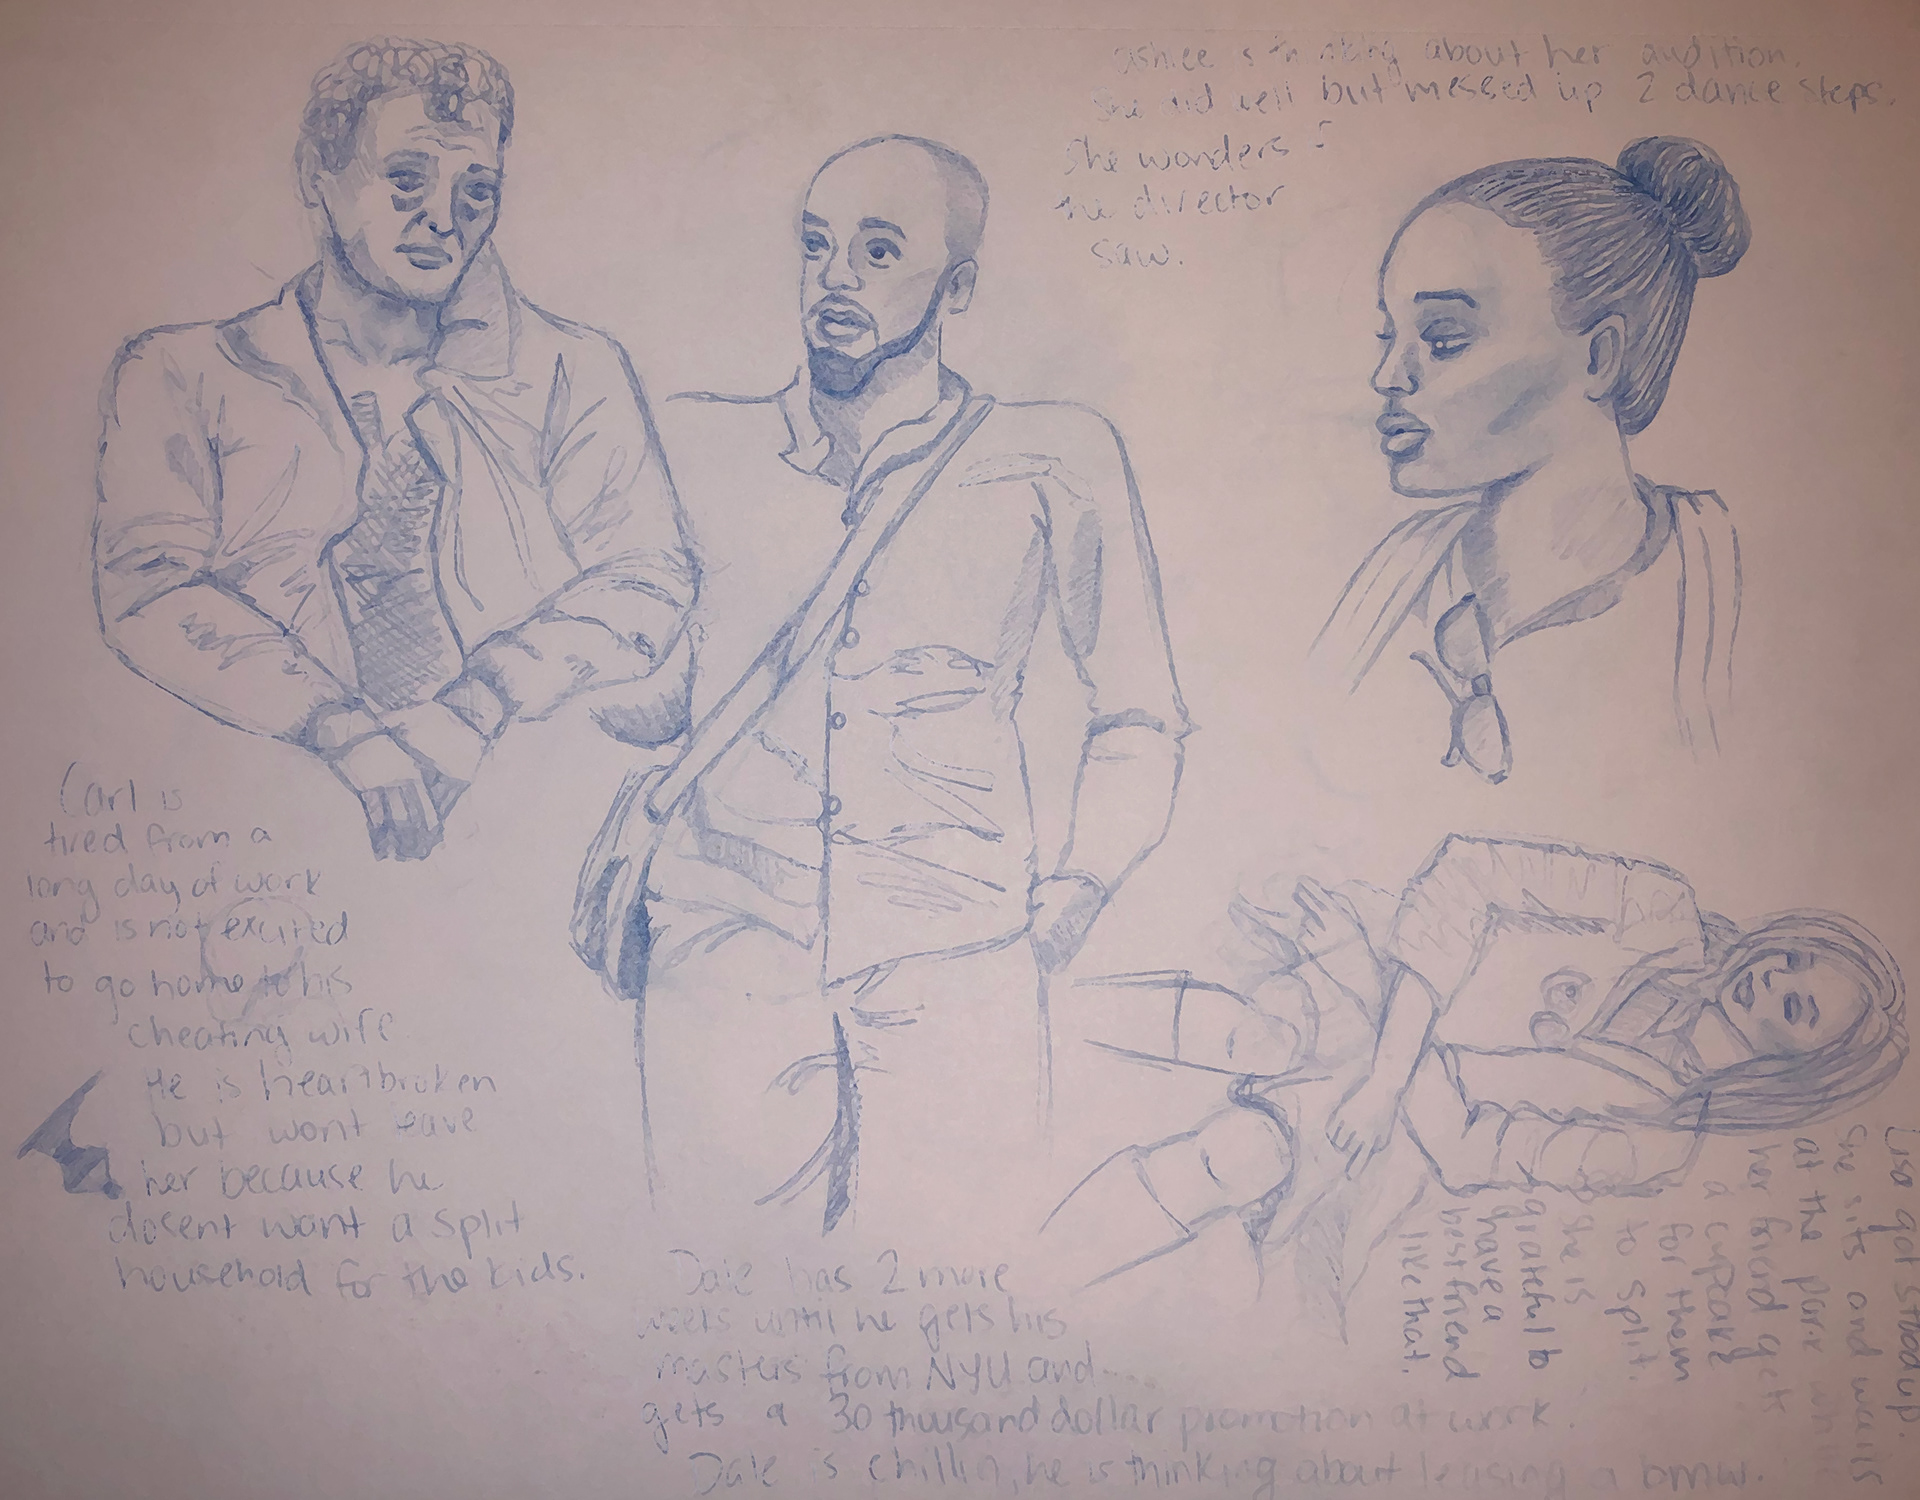 ashlee is thinking about her audition.
She did well but messed up 2 dance steps.
She wonders if
the director
saw.
Carl is
tired from a
long day of work
and is not excited
to go home to his
cheating wife
He is heartbroken
but wont leave
her because he
dosent want a split
household for the kids.
Dale has 2 more
weeks until he gets his
masters from NYU and...
gets a 30 thousand dollar promotion at work.
Dale is chillin, he is thinking about leasing a bmw.
Lisa got stood up.
She sits and waits
at the park while
her friend gets
a cupcake
for them
to split.
She is
grateful to
have a
best friend
like that.